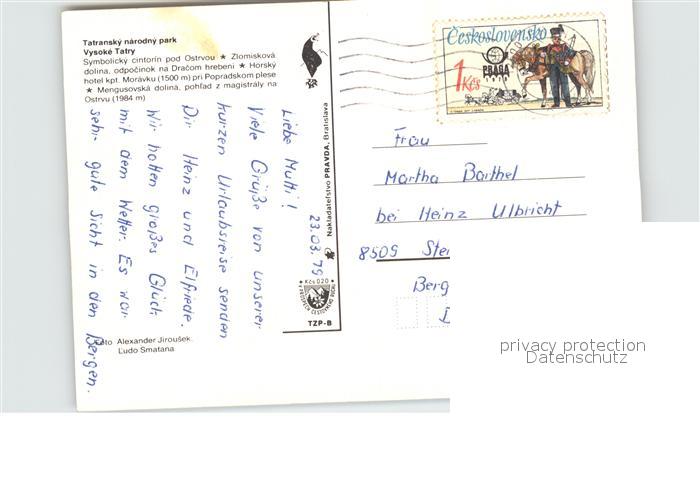 Tatranský národný park
Vysoké Tatry
Symbolický cintorín pod Ostrvou ★ Zlomisková
dolina, odpočinok na Dračom hrebeni ★ Horský
hotel kpt. Morávku (1500 m) pri Popradskom plese
★ Mengusovská dolina, pohľad z magistrály na
Ostrvu (1984 m)
23.03.79
Liebe Mutti!
Viele Grüße von unserer
kurzen Urlaubsreise senden
Dir Heinz und Elfriede.
Wir hatten großes Glück
mit dem Wetter. Es war
sehr gute Sicht in den Bergen.
Foto Alexander Jiroušek
Ľudo Smatana
Nakladateľstvo PRAVDA, Bratislava
Kčs 020
TZP-B
Československo
1 Kčs
PRAGA
1978
Frau
Martha Barthel
bei Heinz Ulbricht
8509 Ste
Berg
privacy protection
Datenschutz